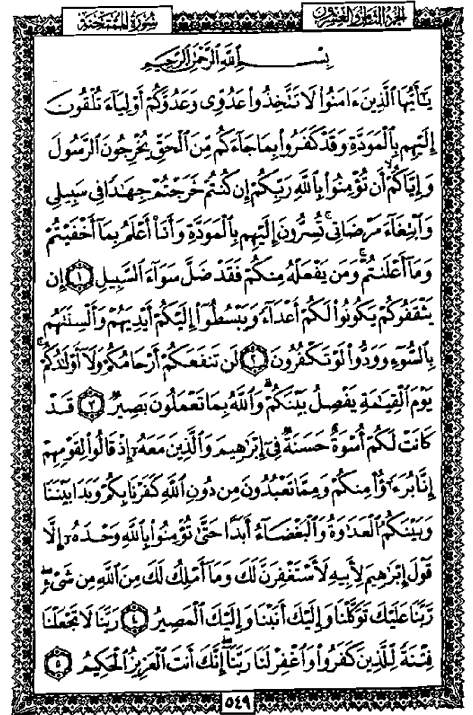 سُورَةُ المُمْتَحنَة
الجُزْءُ الثَّامِنُ وَالعِشْرُونَ
بِسْمِ ٱللَّهِ ٱلرَّحْمَٰنِ ٱلرَّحِيمِ
يَٰٓأَيُّهَا ٱلَّذِينَ ءَامَنُوا۟ لَا تَتَّخِذُوا۟ عَدُوِّى وَعَدُوَّكُمْ أَوْلِيَآءَ تُلْقُونَ
إِلَيْهِم بِٱلْمَوَدَّةِ وَقَدْ كَفَرُوا۟ بِمَا جَآءَكُم مِّنَ ٱلْحَقِّ يُخْرِجُونَ ٱلرَّسُولَ
وَإِيَّاكُمْ ۙ أَن تُؤْمِنُوا۟ بِٱللَّهِ رَبِّكُمْ إِن كُنتُمْ خَرَجْتُمْ جِهَٰدًا فِى سَبِيلِى
وَٱبْتِغَآءَ مَرْضَاتِى ۚ تُسِرُّونَ إِلَيْهِم بِٱلْمَوَدَّةِ وَأَنَا۠ أَعْلَمُ بِمَآ أَخْفَيْتُمْ
وَمَآ أَعْلَنتُمْ ۚ وَمَن يَفْعَلْهُ مِنكُمْ فَقَدْ ضَلَّ سَوَآءَ ٱلسَّبِيلِ ١ إِن
يَثْقَفُوكُمْ يَكُونُوا۟ لَكُمْ أَعْدَآءً وَيَبْسُطُوٓا۟ إِلَيْكُمْ أَيْدِيَهُمْ وَأَلْسِنَتَهُم
بِٱلسُّوٓءِ وَوَدُّوا۟ لَوْ تَكْفُرُونَ ٢ لَن تَنفَعَكُمْ أَرْحَامُكُمْ وَلَآ أَوْلَٰدُكُمْ ۚ
يَوْمَ ٱلْقِيَٰمَةِ يَفْصِلُ بَيْنَكُمْ ۚ وَٱللَّهُ بِمَا تَعْمَلُونَ بَصِيرٌ ٣ قَدْ
كَانَتْ لَكُمْ أُسْوَةٌ حَسَنَةٌ فِىٓ إِبْرَٰهِيمَ وَٱلَّذِينَ مَعَهُۥٓ إِذْ قَالُوا۟ لِقَوْمِهِمْ
إِنَّا بُرَءَٰٓؤُا۟ مِنكُمْ وَمِمَّا تَعْبُدُونَ مِن دُونِ ٱللَّهِ كَفَرْنَا بِكُمْ وَبَدَا بَيْنَنَا
وَبَيْنَكُمُ ٱلْعَدَٰوَةُ وَٱلْبَغْضَآءُ أَبَدًا حَتَّىٰ تُؤْمِنُوا۟ بِٱللَّهِ وَحْدَهُۥٓ إِلَّا
قَوْلَ إِبْرَٰهِيمَ لِأَبِيهِ لَأَسْتَغْفِرَنَّ لَكَ وَمَآ أَمْلِكُ لَكَ مِنَ ٱللَّهِ مِن شَىْءٍ ۖ
رَّبَّنَا عَلَيْكَ تَوَكَّلْنَا وَإِلَيْكَ أَنَبْنَا وَإِلَيْكَ ٱلْمَصِيرُ ٤ رَبَّنَا لَا تَجْعَلْنَا
فِتْنَةً لِّلَّذِينَ كَفَرُوا۟ وَٱغْفِرْ لَنَا رَبَّنَآ ۖ إِنَّكَ أَنتَ ٱلْعَزِيزُ ٱلْحَكِيمُ ٥
٥٤٩